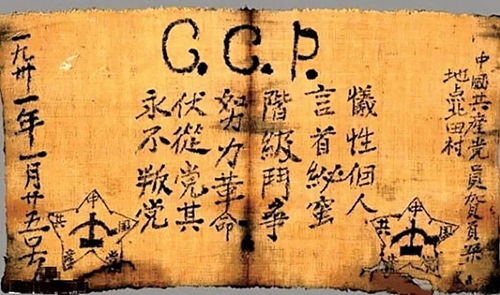 C.C.P.
中國共產党員賀頁朶
地点北田村
犧性個人
言首秘蜜
階級鬥争
努力革命
伏從党其
永不叛党
一九卅一年一月廿五号
中国共產党
中国共產党